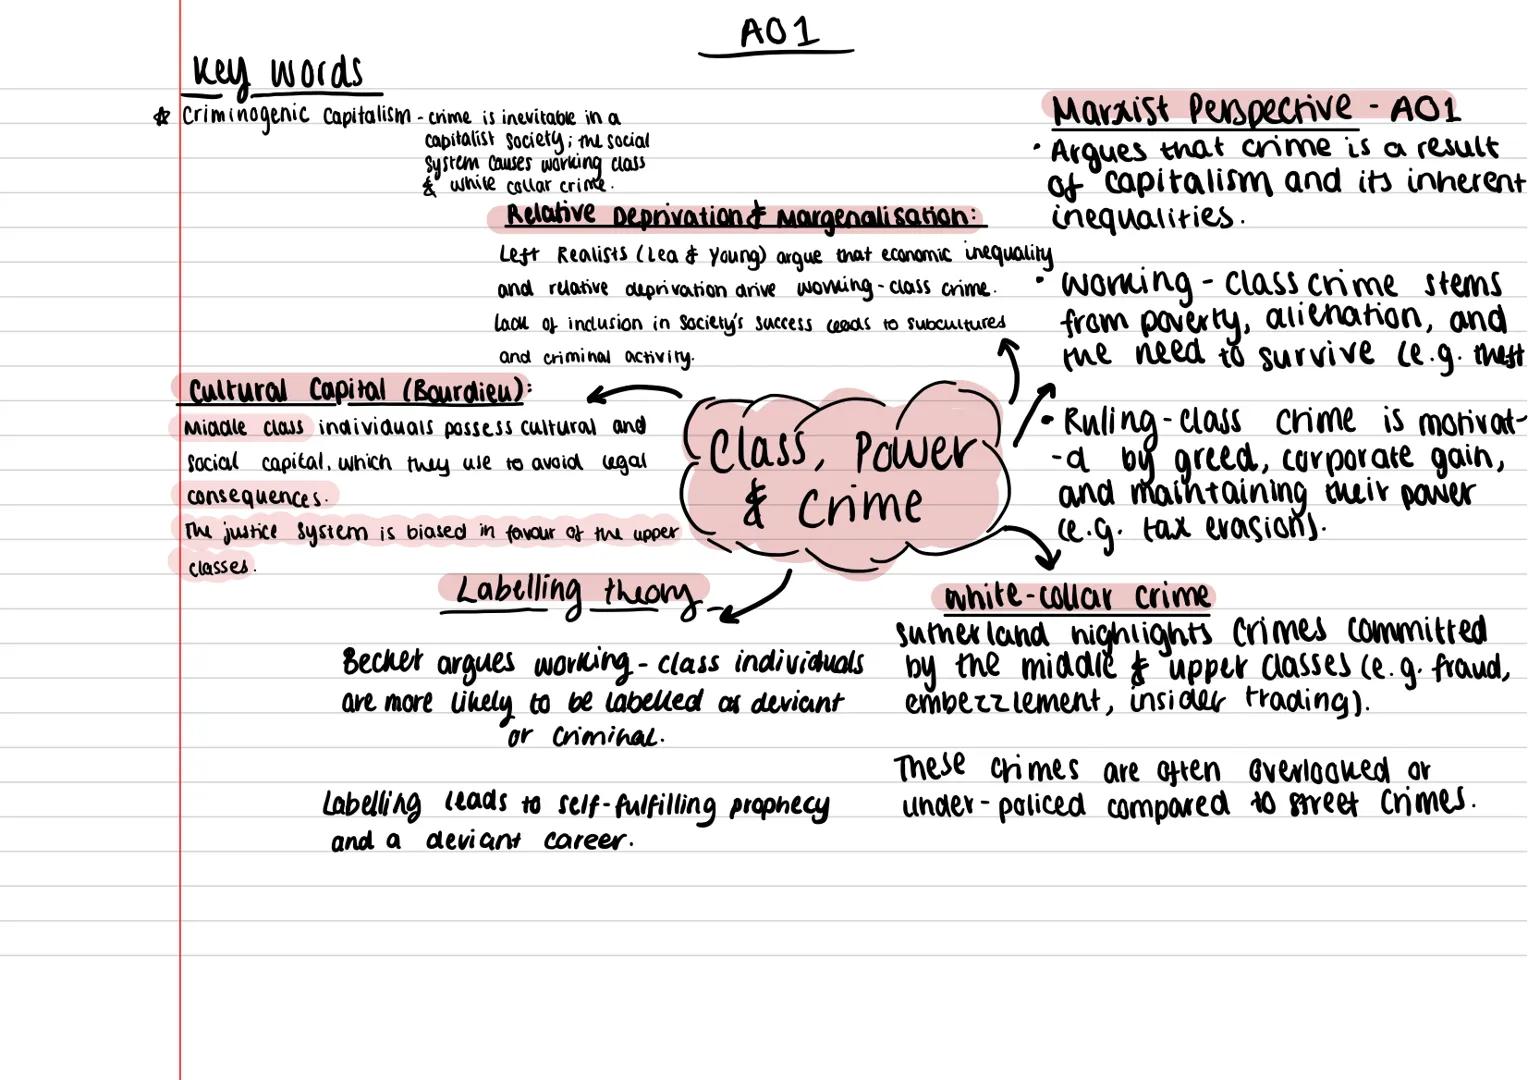 AO1
Key words
☆ Criminogenic Capitalism - crime is inevitable in a
capitalist society; the social
system causes working class
& white collar crime.
Relative Deprivation & Margenalisation:
Left Realists (Lea & Young) argue that economic inequality
and relative deprivation drive working-class crime.
Lack of inclusion in society's success leads to subcultures
and criminal activity.
Cultural Capital (Bourdieu):
Middle class individuals possess cultural and
social capital, which they use to avoid legal
consequences.
The justice system is biased in favour of the upper
classes.
Class, Power
& Crime
Marxist Perspective - AO1
• Argues that crime is a result
of capitalism and its inherent
inequalities.
• Working-class crime stems
from poverty, alienation, and
the need to survive (e.g. theft
• Ruling-class crime is motivat-
-d by greed, corporate gain,
and maintaining their power
(e.g. tax evasion).
Labelling theory
Becker argues working-class individuals
are more likely to be labelled as deviant
or criminal.
Labelling leads to self-fulfilling prophecy
and a deviant career.
White-collar crime
Sutherland highlights crimes committed
by the middle & upper classes (e.g. fraud,
embezzlement, insider trading).
These crimes are often overlooked or
under-policed compared to street crimes.